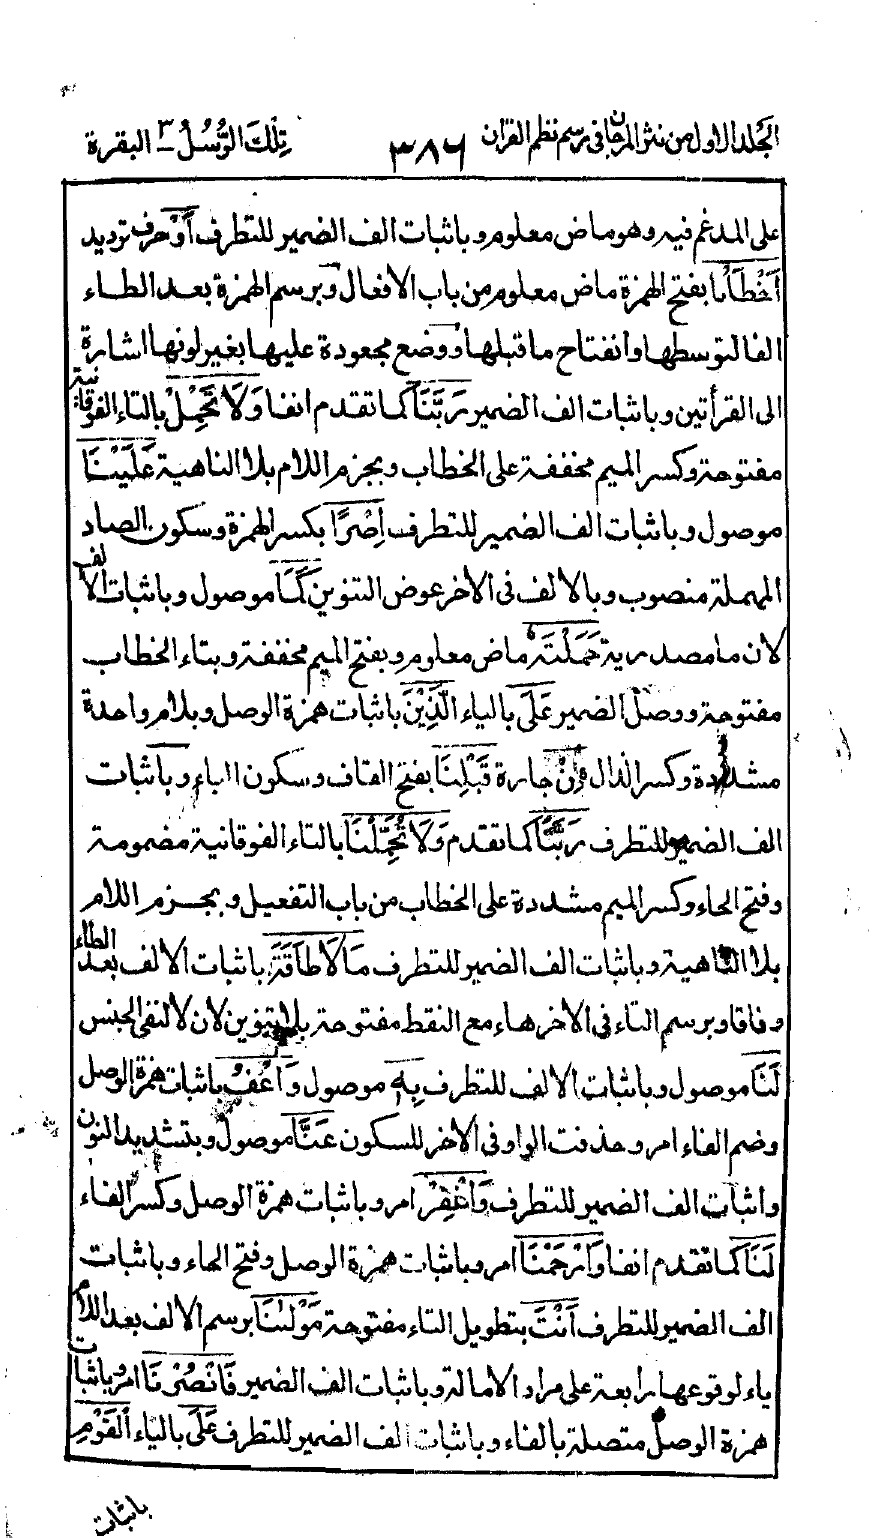 الجلد الاول من نثر المرجان فی رسم نظم القرآن ٣٨٦ تِلْكَ الرُّسُلُ ٣ البقرة
علی المدغم فیه وهو ماض معلوم وباثبات الف الضمیر للتطرف أَوْ حرف تردید
أَخْطَأْنَا بفتح الهمزة ماض معلوم من باب الافعال وبرسم الهمزة بعد الطاء
الفا لتوسطها وانفتاح ما قبلها ووضع مجعودة علیها بغیر لونها اشارة
الی القرأتین وباثبات الف الضمیر رَبَّنَا كما تقدم انفا وَلَا تَحْمِلْ بالتاء الفوقانیة
مفتوحة وكسر المیم مخففة علی الخطاب وبجزم اللام بلا الناهیة عَلَيْنَا
موصول وباثبات الف الضمیر للتطرف إِصْرًا بكسر الهمزة وسكون الصاد
المهملة منصوب وبالالف فی الآخر عوض التنوین كَمَا موصول وباثبات الالف
لان ما مصدریة حَمَلْتَهُ ماض معلوم وبفتح المیم مخففة وبتاء الخطاب
مفتوحة ووصل الضمیر عَلَى بالیاء الَّذِيْنَ باثبات همزة الوصل وبلام واحدة
مشددة وكسر الذال مِنْ جارة قَبْلِنَا بفتح القاف وسكون الباء وباثبات
الف الضمیر للتطرف رَبَّنَا كما تقدم وَلَا تُحَمِّلْنَا بالتاء الفوقانیة مضمومة
وفتح الحاء وكسر المیم مشددة علی الخطاب من باب التفعیل وبجزم اللام
بلا الناهیة وباثبات الف الضمیر للتطرف مَا لَا طَاقَةَ باثبات الالف بعد الطاء
وفاقا وبرسم التاء فی الآخر هاء مع النقط مفتوحة بلا تنوین لان لا لنفی الجنس
لَنَا موصول وباثبات الالف للتطرف بِهِ موصول وَاعْفُ باثبات همزة الوصل
وضم الفاء امر وحذفت الواو فی الآخر للسكون عَنَّا موصول وبتشدید النون
واثبات الف الضمیر للتطرف وَاغْفِرْ امر وباثبات همزة الوصل وكسر الفاء
لَنَا كما تقدم انفا وَارْحَمْنَا امر وباثبات همزة الوصل وفتح الحاء وباثبات
الف الضمیر للتطرف أَنْتَ بتطویل التاء مفتوحة مَوْلٰىنَا برسم الالف بعد اللام
یاء لوقوعها رابعة علی مراد الامالة وباثبات الف الضمیر فَانْصُرْنَا امر وباثبات
همزة الوصل متصلة بالفاء وباثبات الف الضمیر للتطرف عَلَى بالیاء الْقَوْمِ
باثبات